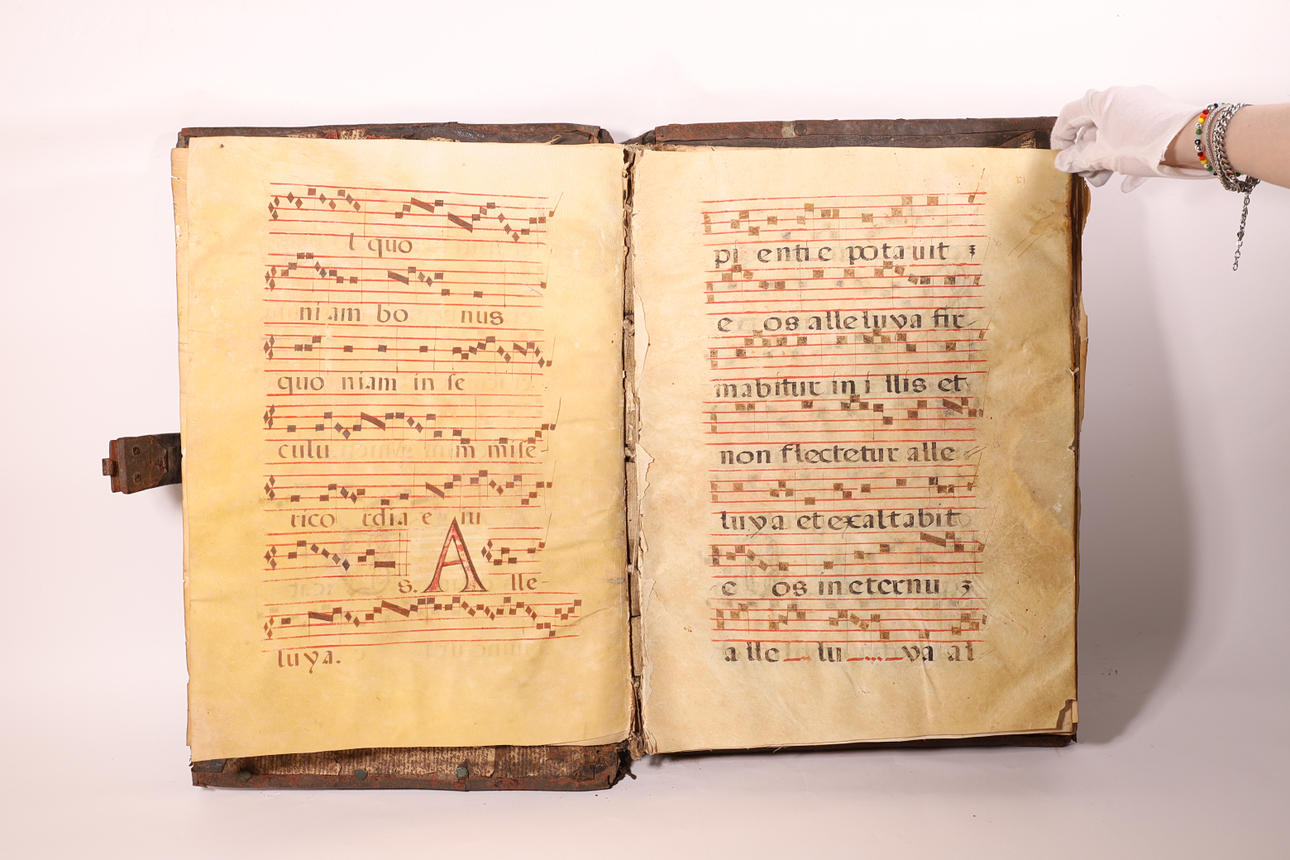 quo
ni am bo nus
quo niam in se
culu m mise-
rico rdia e iu
s. A lle-
luya.
pi enti e potauit
e os alleluya fir-
mabitur in i llis et
non flectetur alle
luya et exaltabit
e os in eternu
a lle lu ya al